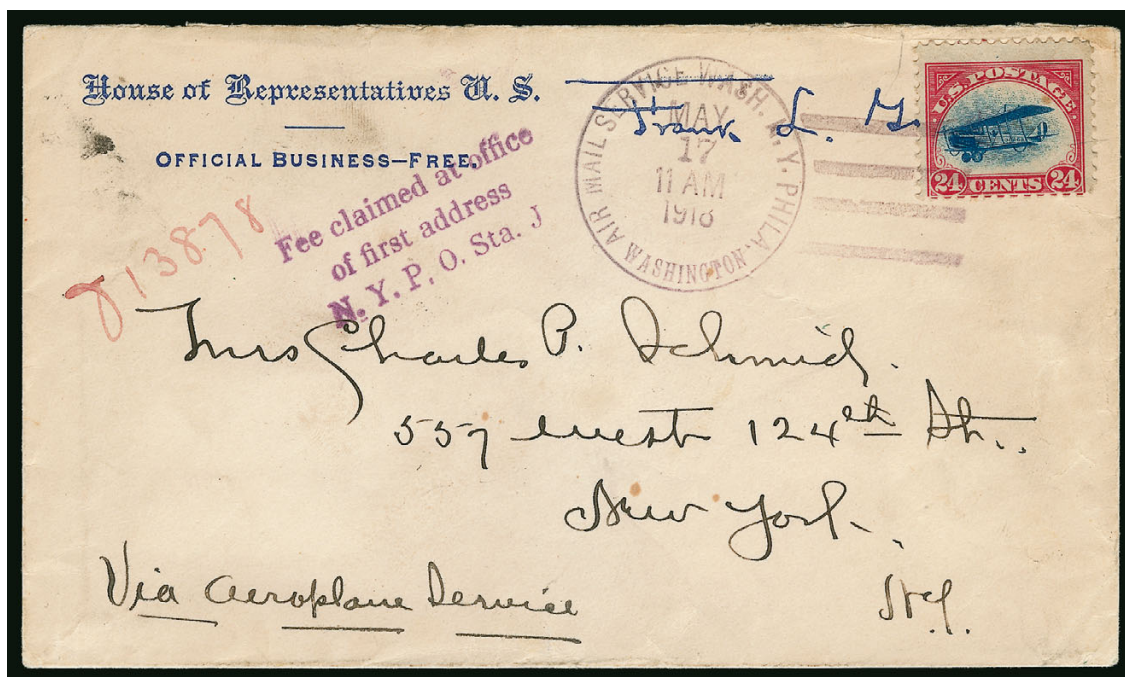 House of Representatives U. S.
OFFICIAL BUSINESS—FREE.
Frank L. G.
AIR MAIL SERVICE WASH. N.Y. PHILA.
MAY
17
11 AM
1918
WASHINGTON
U.S. POSTAGE
24 CENTS 24
Fee claimed at office
of first address
N. Y. P. O. Sta. J
813878
Mrs Charles P. Schmid.
557 West 124th St..
New York.
N.Y.
Via Aeroplane Service